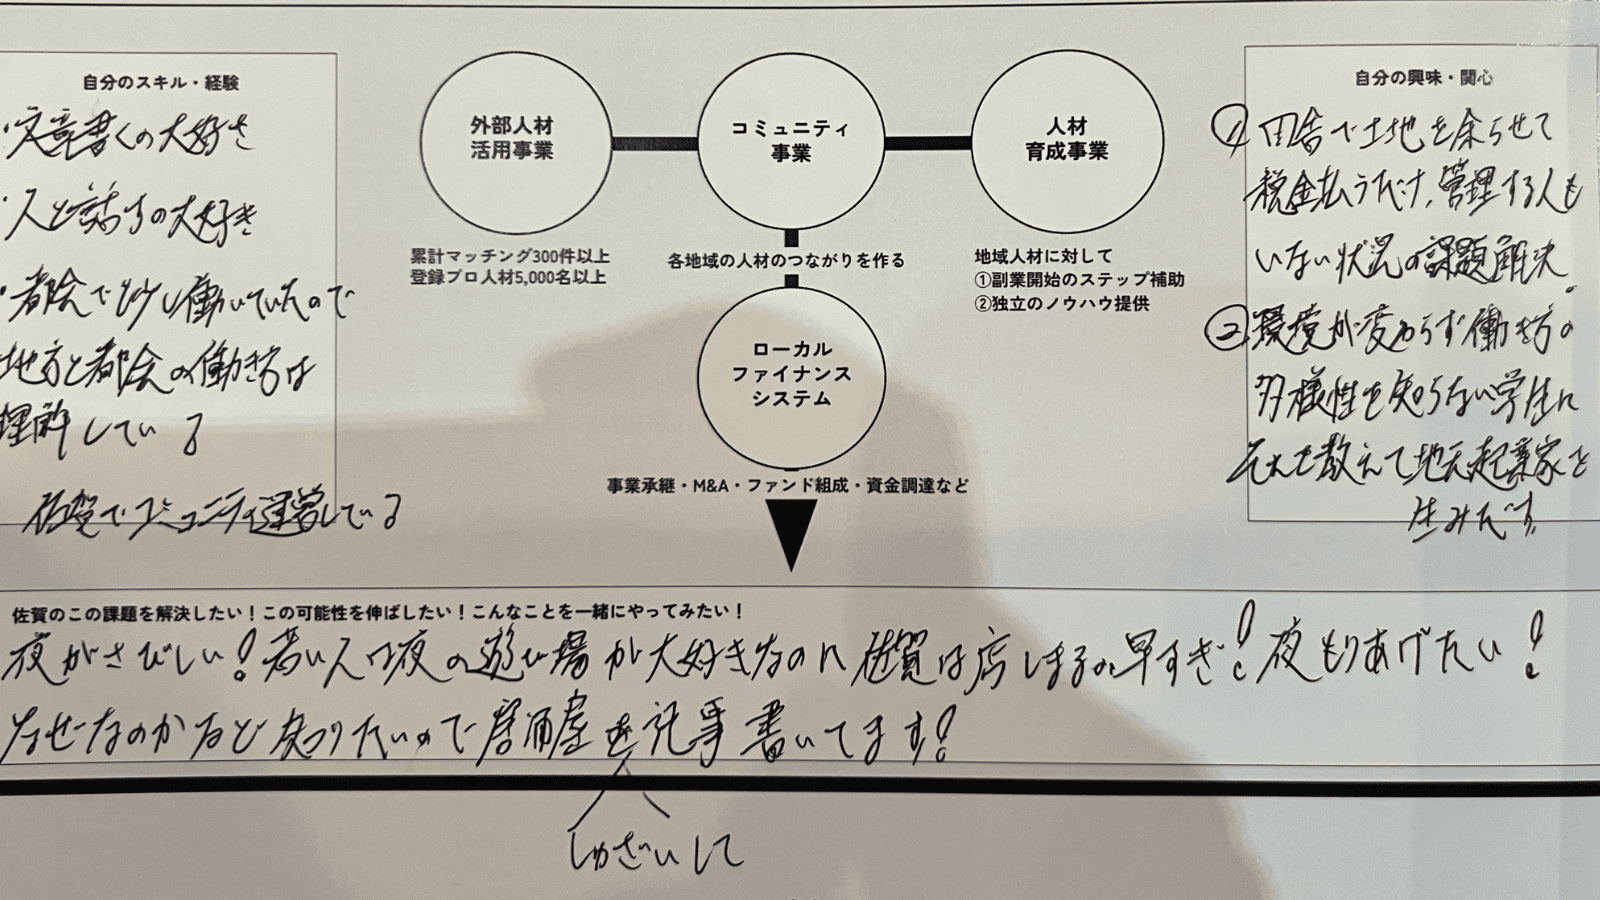 自分のスキル・経験
・文章書くの大好き
・人と話すの大好き
・都会で少し働いていたので
地方と都会の働き方は
理解している
佐賀でコミュニティ運営している
外部人材
活用事業
累計マッチング300件以上
登録プロ人材5,000名以上
コミュニティ
事業
各地域の人材のつながりを作る
人材
育成事業
地域人材に対して
①副業開始のステップ補助
②独立のノウハウ提供
ローカル
ファイナンス
システム
事業承継・M&A・ファンド組成・資金調達など
自分の興味・関心
①田舎で土地を余らせて
税金払うだけ、管理する人も
いない状況の課題解決。
②環境が変わらず働き方の
多様性を知らない学生に
それを教えて地元起業家を
生みだす。
佐賀のこの課題を解決したい！この可能性を伸ばしたい！こんなことを一緒にやってみたい！
夜がさびしい！若い人は夜の遊び場が大好きなのに佐賀は店しまるの早すぎ！夜もりあげたい！
なぜなのかなど知りたいので居酒屋を記事書いてます！
しゅざいして